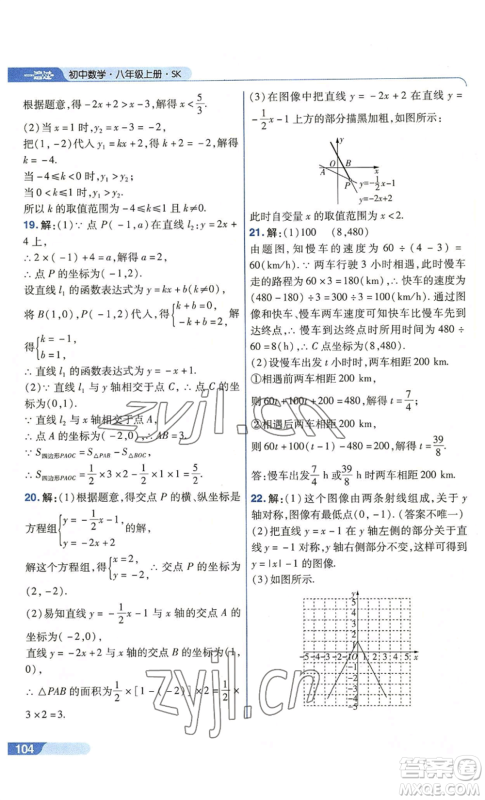 一遍过 初中数学·八年级上册·SK
根据题意,得-2x+2>x-3,解得x<5/3.
(2)当x=1时,y₂=x-3=-2.
把(1,-2)代入y₁=kx+2,得k+2=-2,解得
k=-4.
当-4≤k<0时,y₁>y₂;
当0<k≤1时,y₁>y₂.
所以k的取值范围为-4≤k≤1且k≠0.
19.解:(1)∵点P(-1,a)在直线l₂:y=2x+
4上,
∴2×(-1)+4=a,∴a=2,
∴点P的坐标为(-1,2).
设直线l₁的函数表达式为y=kx+b(k≠0),
将B(1,0),P(-1,2)代入,得{k+b=0, -k+b=2,
解得{k=-1, b=1,
∴直线l₁的函数表达式为y=-x+1.
(2)∵直线l₁与y轴相交于点C,∴点C的坐
标为(0,1).
∵直线l₂与x轴相交于点A,
∴点A的坐标为(-2,0),∴AB=3.
∵S四边形PAOC=S△PAB-S△BOC,
∴S四边形PAOC=1/2×3×2-1/2×1×1=5/2.
20.解:(1)根据题意,得交点P的横、纵坐标是
方程组{y=-1/2x-1, y=-2x+2的解,
解这个方程组,得{x=2, y=-2.∴交点P的坐标为
(2,-2).
(2)易知直线y=-1/2x-1与x轴交点A的坐标为
(-2,0),
直线y=-2x+2与x轴交点B的坐标为(1,
0),
∴△PAB的面积为1/2×[1-(-2)]×2=1/2×
3×2=3.
104
(3)在图像中把直线y=-2x+2在直线y=-
1/2x-1上方的部分描黑加粗,如图所示:
y
A O B x
P
y=-1/2x-1
y=-2x+2
此时自变量x的取值范围为x<2.
21.解:(1)100 (8,480)
由题图,知慢车的速度为60÷(4-3)=
60(km/h).∵两车行驶3h相遇,此时慢车行
走的路程为60×3=180(km),∴快车的速度为
(480-180)÷3=300÷3=100(km/h).通过图
像和快车、慢车两车速度可知快车比慢车先到
达终点,∴慢车到达终点时所用时间为480÷
60=8(h),∴点C的坐标为(8,480).
(2)设慢车出发t小时时,两车相距200 km.
①相遇前两车相距200 km,
则60t+100t+200=480,解得t=7/4;
②相遇后两车相距200 km,
则60t+100(t-1)-480=200,解得t=39/8.
答:慢车出发7/4h或39/8h时两车相距200 km.
22.解:(1)这个图像由两条射线组成,关于y
轴对称,图像有最低点.(答案不唯一)
(2)将直线y=x-1在y轴左侧的部分关于直
线y=-1对称,y轴右侧的部分不变,可得y
=|x|-1的图像.
(3)如图所示.
y
5
4
3
2
1
-5-4-3-2-1O 1 2 3 4 5 x
zyjl.cn
zyjl.cn
答案圈
MXQE.COM